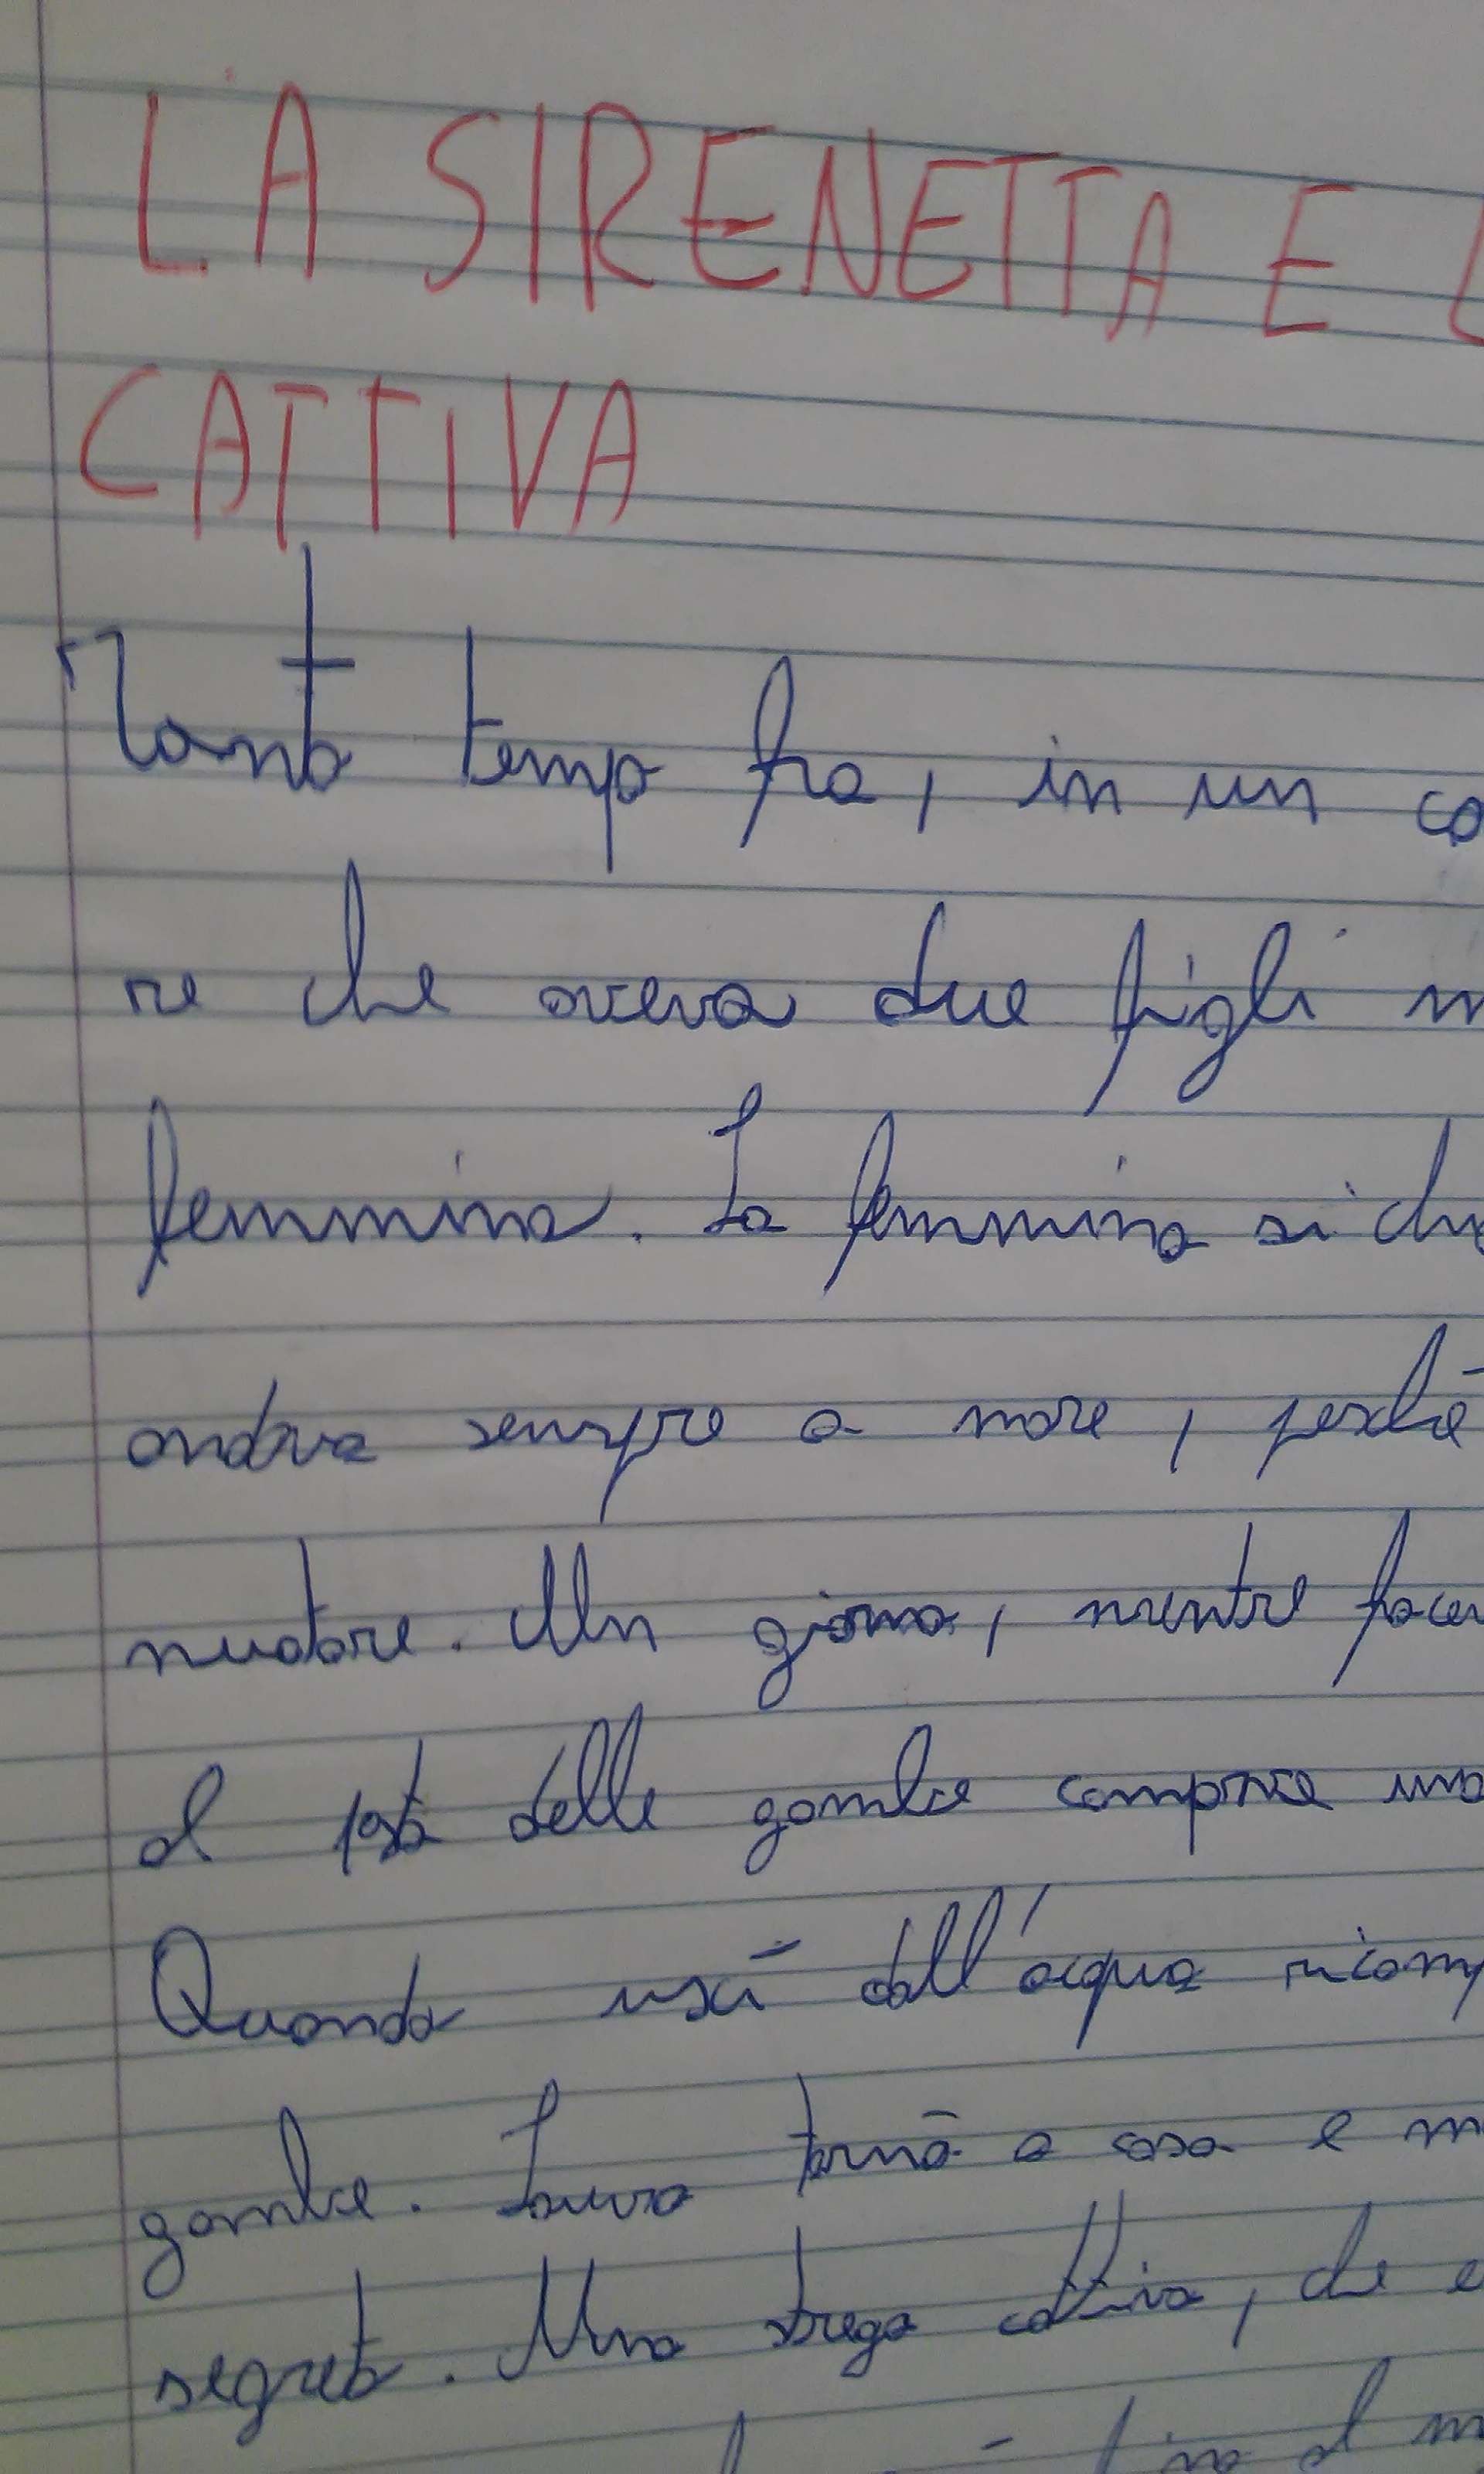 LA SIRENETTA E L
CATTIVA
Tanto tempo fa, in un ca
re che aveva due figli m
femmina. La femmina si chi
andava sempre a mare, perché
nuotare. Un giorno, mentre facev
al posto delle gambe comparve una
Quando uscì dall'acqua ricomp
gambe. Laura tornò a casa e m
segreto. Una strega cattiva, che e